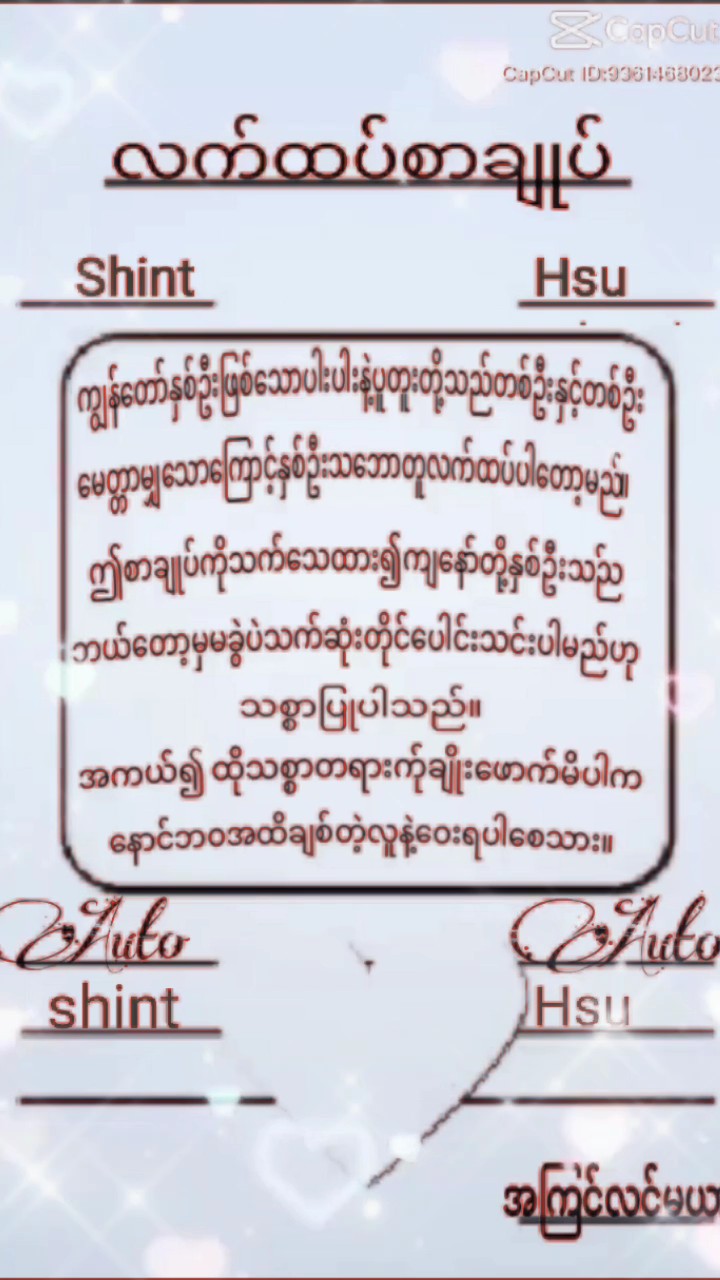 CapCut
CapCut ID:9361468023
လက်ထပ်စာချုပ်
Shint Hsu
ကျွန်တော်နှစ်ဦးဖြစ်သောပါးပါးနဲ့ပူတူးတို့သည်တစ်ဦးနှင့်တစ်ဦး
မေတ္တာမျှသောကြောင့်နှစ်ဦးသဘောတူလက်ထပ်ပါတော့မည်။
ဤစာချုပ်ကိုသက်သေထား၍ကျနော်တို့နှစ်ဦးသည
ဘယ်တော့မှမခွဲပဲသက်ဆုံးတိုင်ပေါင်းသင်းပါမည်ဟု
သစ္စာပြုပါသည်။
အကယ်၍ ထိုသစ္စာတရားကိုချိုးဖောက်မိပါက
နောင်ဘဝအထိချစ်တဲ့လူနဲ့ဝေးရပါစေသား။
Auto Auto
shint Hsu
အကြင်လင်မယာ